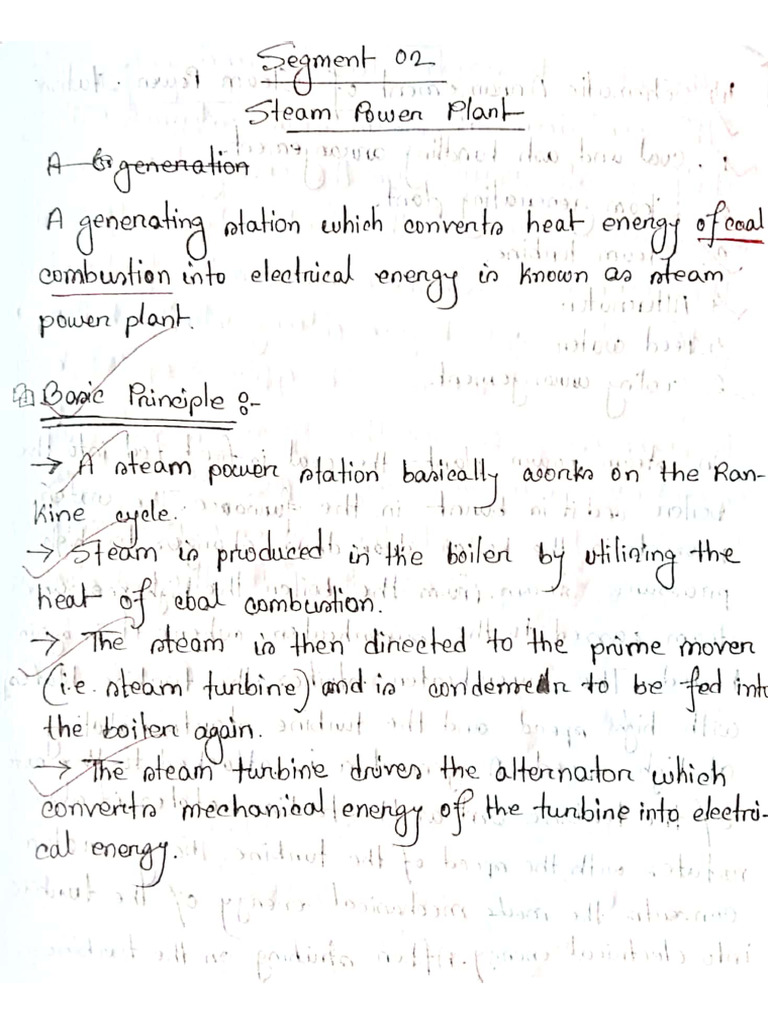 Segment 02
Steam Power Plant
A generation
A generating station which converts heat energy of coal
combustion into electrical energy is known as steam
power plant.
Basic Principle :-
→ A steam power station basically works on the Ran-
kine cycle.
→ Steam is produced in the boiler by utilizing the
heat of coal combustion.
→ The steam is then directed to the prime mover
(i.e. steam turbine) and is to be fed into
the boiler again.
→ The steam turbine drives the alternator which
converts mechanical energy of the turbine into electri-
cal energy.